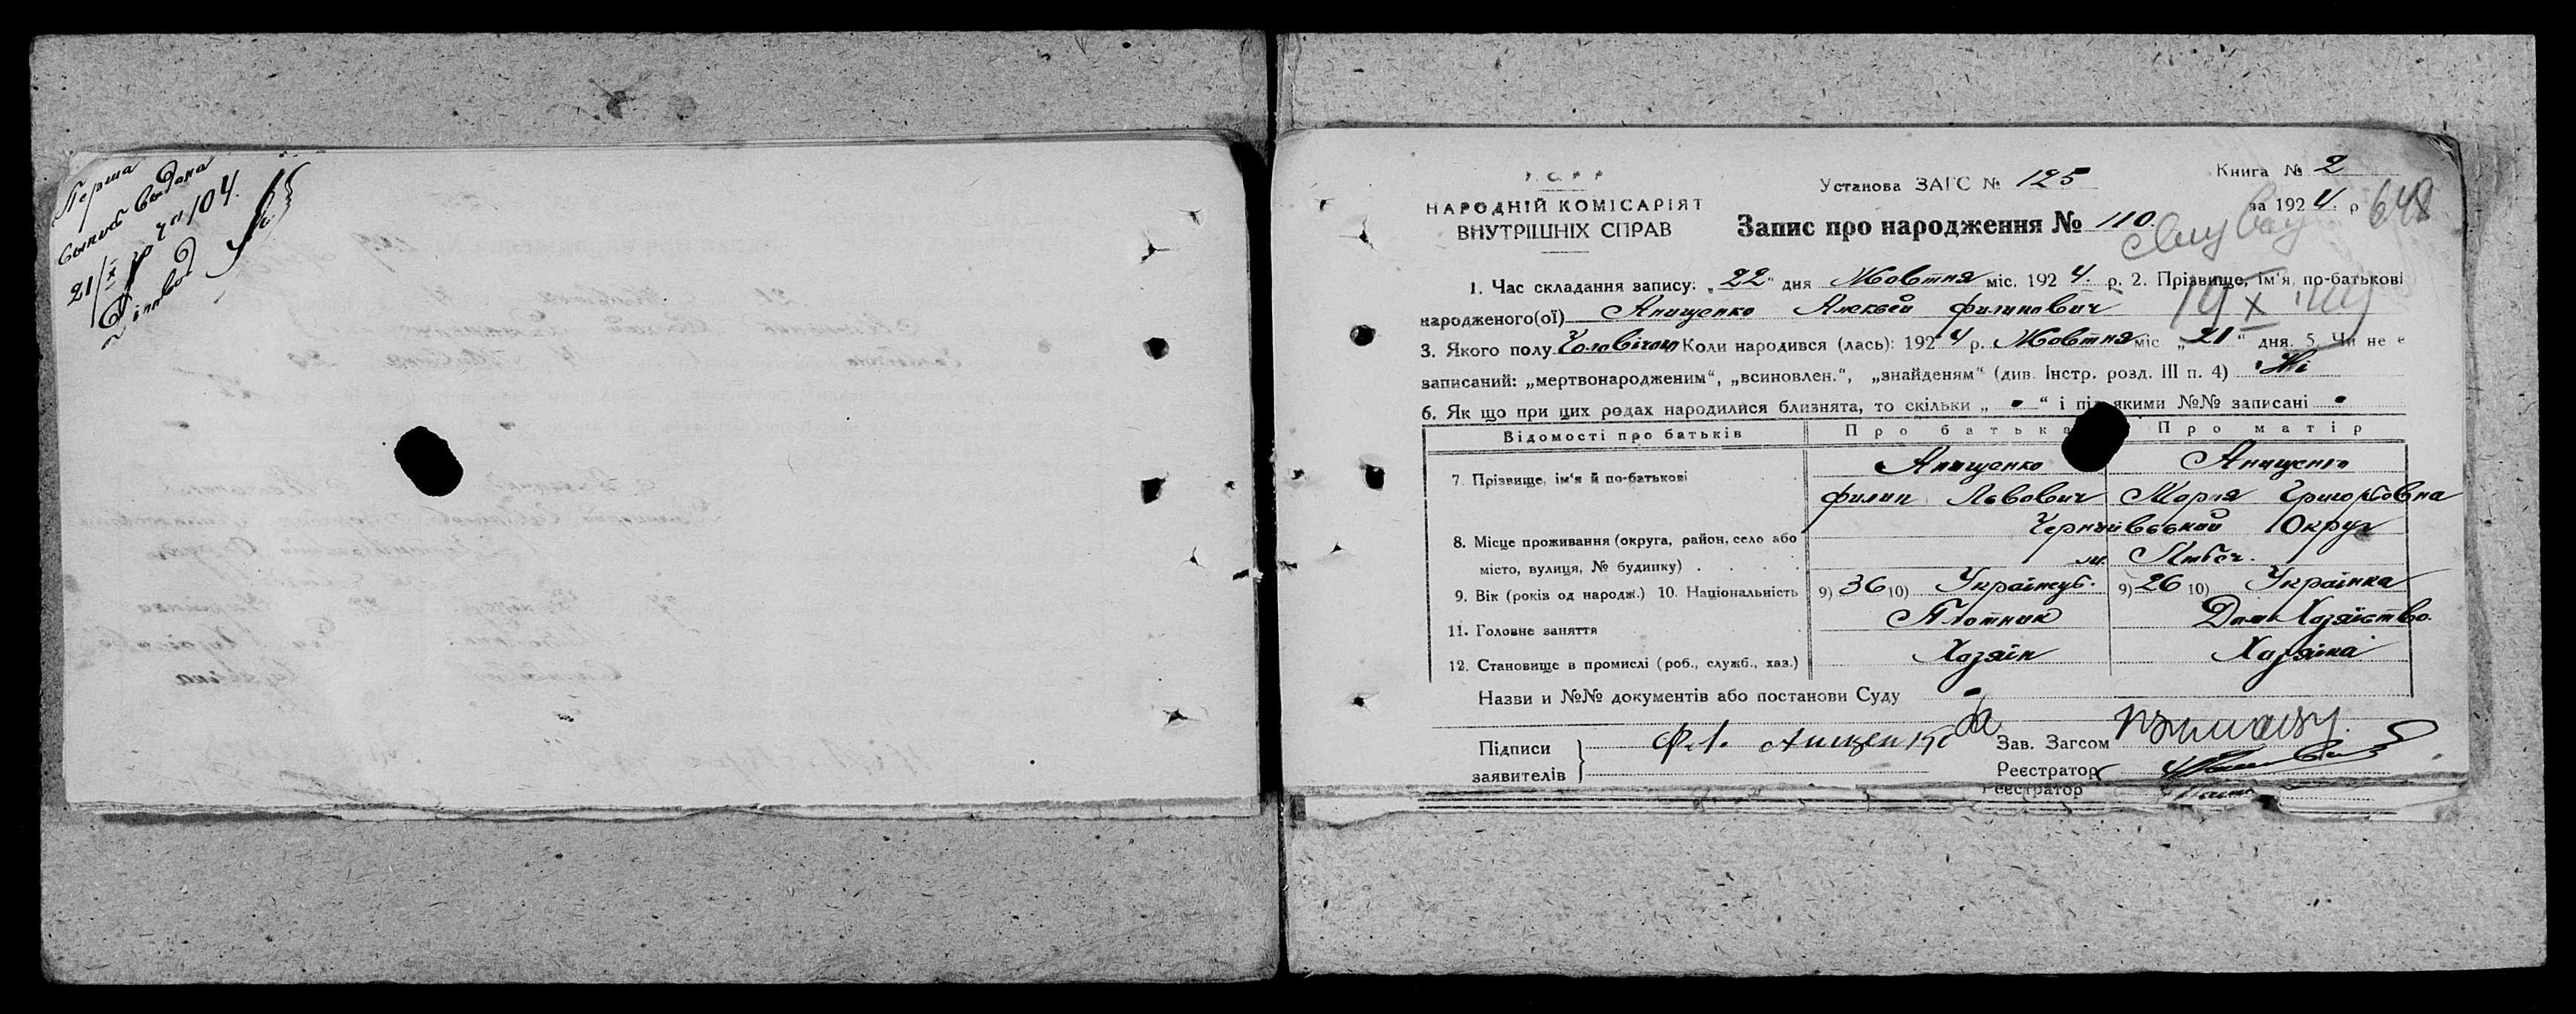 Перша
выпись выдана
21/X р 24 104.
У.С.Р.Р.
НАРОДНІЙ КОМІСАРІЯТ
ВНУТРІШНІХ СПРАВ
Установа ЗАГС № 125
Книга № 2
за 1924 р
648
Запис про народження № 110.
1. Час складання запису: „22“ дня Жовтня міс. 1924. р. 2. Прізвище, ім‘я, по-батькові
народженого(ої) Анищенко Алексей Филипович
19 X
3. Якого полу Чоловічого Коли народився (лась): 1924 р. Жовтня міс „21“ дня. 5. Чи не є
записаний: „мертвонародженим“, „всиновлен.“, „знайденям“ (див. Інстр. розд. III п. 4) Ні
6. Як що при цих родах народилися близнята, то скільки „ • “ і під якими №№ записані •
Відомості про батьків Про батька Про матір
7. Прізвище, ім‘я й по-батькові Анищенко Анищенко
Филип Львович Мария Григорьовна
8. Місце проживання (округа, район, село або Округ
місто, вулиця, № будинку) . . . . м. Любеч.
9. Вік (років од народж.) 10. Національність 9) 36 10) Українець. 9) 26 10) Українка
11. Головне заняття Плотник Дом Хозяйство.
12. Становище в промислі (роб., служб., хаз.) Хазяїн Хазяїка
Назви и №№ документів або постанови Суду
Підписи Ф. Л. Анищенко Зав. Загсом
заявителів Реєстратор
Реєстратор